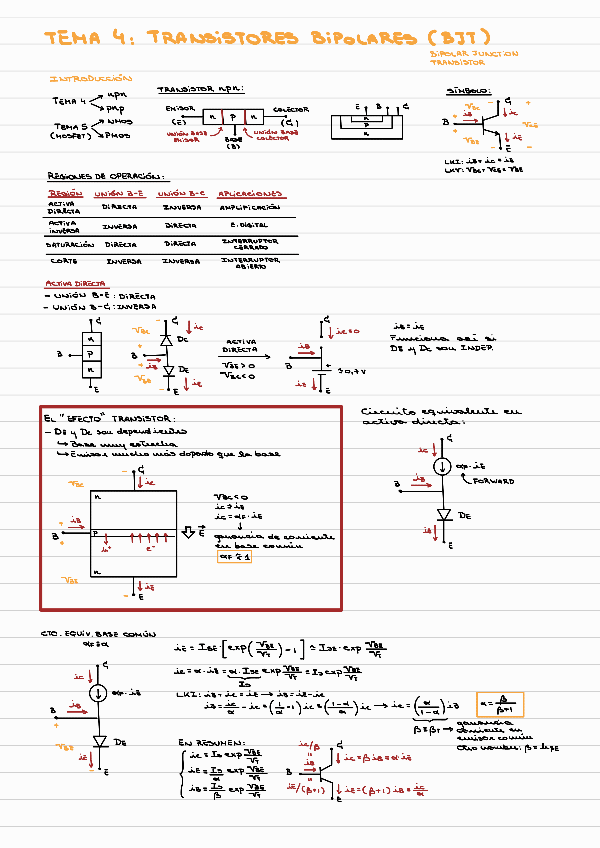 TEMA 4: TRANSISTORES BIPOLARES (BJT)
BIPOLAR JUNCTION
TRANSISTOR
INTRODUCCIÓN
TEMA 4
npn
pnp
TEMA 5
(MOSFET)
NMOS
PMOS
TRANSISTOR npn:
EMISOR
(E)
n p n
COLECTOR
(C)
UNIÓN BASE
EMISOR
BASE
(B)
UNIÓN BASE
COLECTOR
E B C
n
p
n
SÍMBOLO:
C
VBC
iC
B
iB
VCE
VBE
iE
E
LKI: iB + iC = iE
LKV: VBC + VCE = VBE
REGIONES DE OPERACIÓN:
REGIÓN UNIÓN B-E UNIÓN B-C APLICACIONES
ACTIVA DIRECTA DIRECTA INVERSA AMPLIFICACIÓN
ACTIVA INVERSA INVERSA DIRECTA E. DIGITAL
SATURACIÓN DIRECTA DIRECTA INTERRUPTOR CERRADO
CORTE INVERSA INVERSA INTERRUPTOR ABIERTO
ACTIVA DIRECTA
- UNIÓN B-E: DIRECTA
- UNIÓN B-C: INVERSA
C
n
B
p
n
E
C
VBC
iC
DC
B
iB
DE
VBE
iE
E
ACTIVA
DIRECTA
VBE > 0
VBC < 0
C
iC = 0
iB
B
≈0,7V
iE
E
iB = iE
Funciona así si
DE y DC son INDEP.
EL "EFECTO" TRANSISTOR:
- DE y DC son dependientes
↳ Base muy estrecha
↳ Emisor mucho más dopado que la base
C
iC
VBC
n
iB
B
p
h+ e-
E
n
VBE
iE
E
VBC < 0
iC ≠ iB
iC = αF · iE
ganancia de corriente
en base común
αF ≈ 1
Circuito equivalente en
activa directa:
C
iC
αF · iE
FORWARD
iB
B
DE
E
CTO. EQUIV. BASE COMÚN
C
iC
αF · iE
iB
B
VBE
DE
iE
E
iE = ISE · [exp(VBE/VT) - 1] ≈ ISE · exp VBE/VT
LKI: iB + iC = iE → iB = iE - iC
iB = iC/α - iC = (1/α - 1) iC = (1-α/α) iC → iC = (α/1-α) iB
α = β/β+1
ganancia
corriente en
emisor común
Otro nombre: β = hFE
EN RESUMEN:
iC = IS exp VBE/VT
iE = IS/α exp VBE/VT
iB = IS/β exp VBE/VT
iC/β
C
iC = β iB = α iE
B
iB
iE/(β+1)
iE = (β+1) iB = iC/α
E